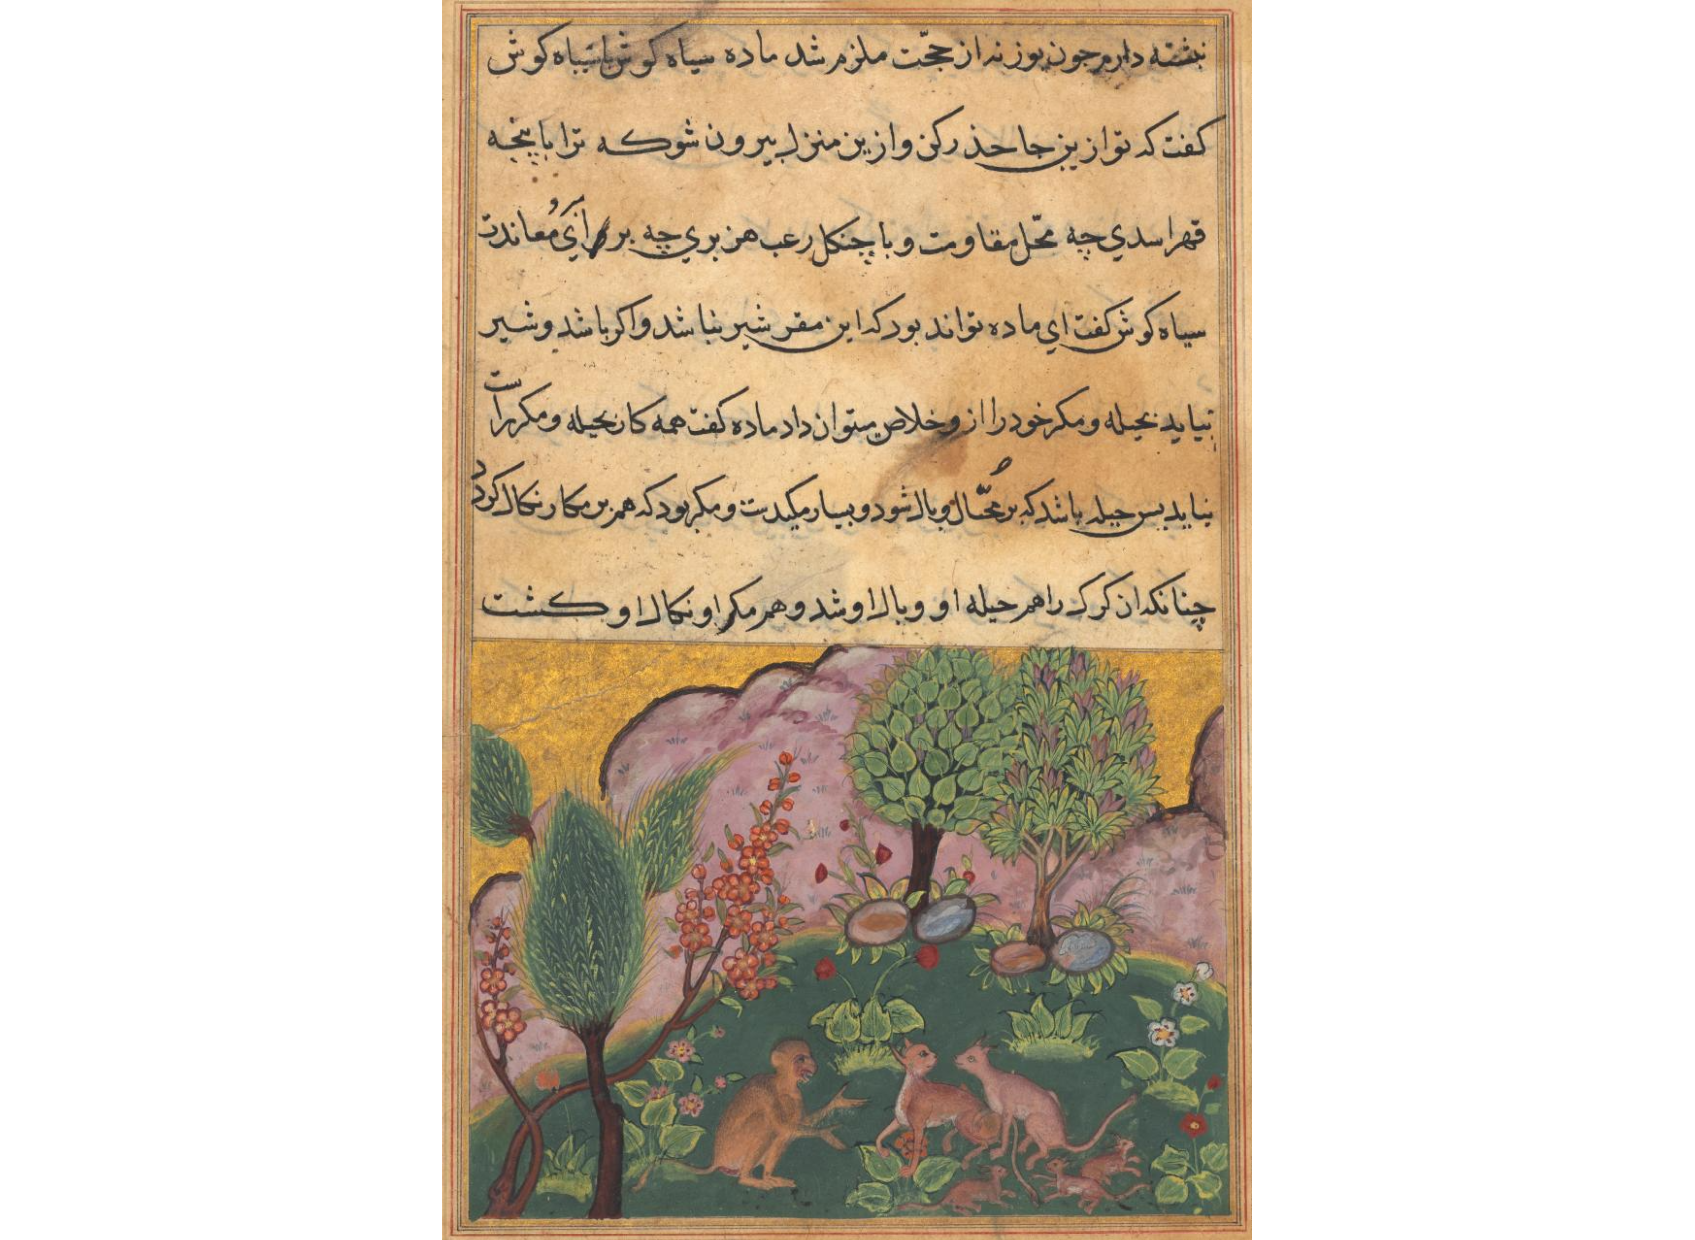 نبشته دارم جون بوزنه از حجّت ملزم شد ماده سیاه کوش باسیاه کوش
کفت که تو ازین جا حذر کن و ازین منزل بیرون شو که ترا با پنجه
قهر اسدي چه محّل مقاومت و با چنکل رعب هزبري چه مروُ آي مُعاندت
سیاه کوش کفت اي ماده تواند بود که این مقر شیر نباشد و اکر باشد و شیر
بیاید بحیله و مکر خود را از و خلاص میتوان داد ماده کفت همه کار بحیله و مکر راست
نیاید بس حیله باشد که بر مُحّال وبال شود و بسیار مکیدت و مکر بود که هم بر مکار نکال کردد
چنانکه ان کرک را هم حیله او وبال او شد و هم مکر او نکال او کشت